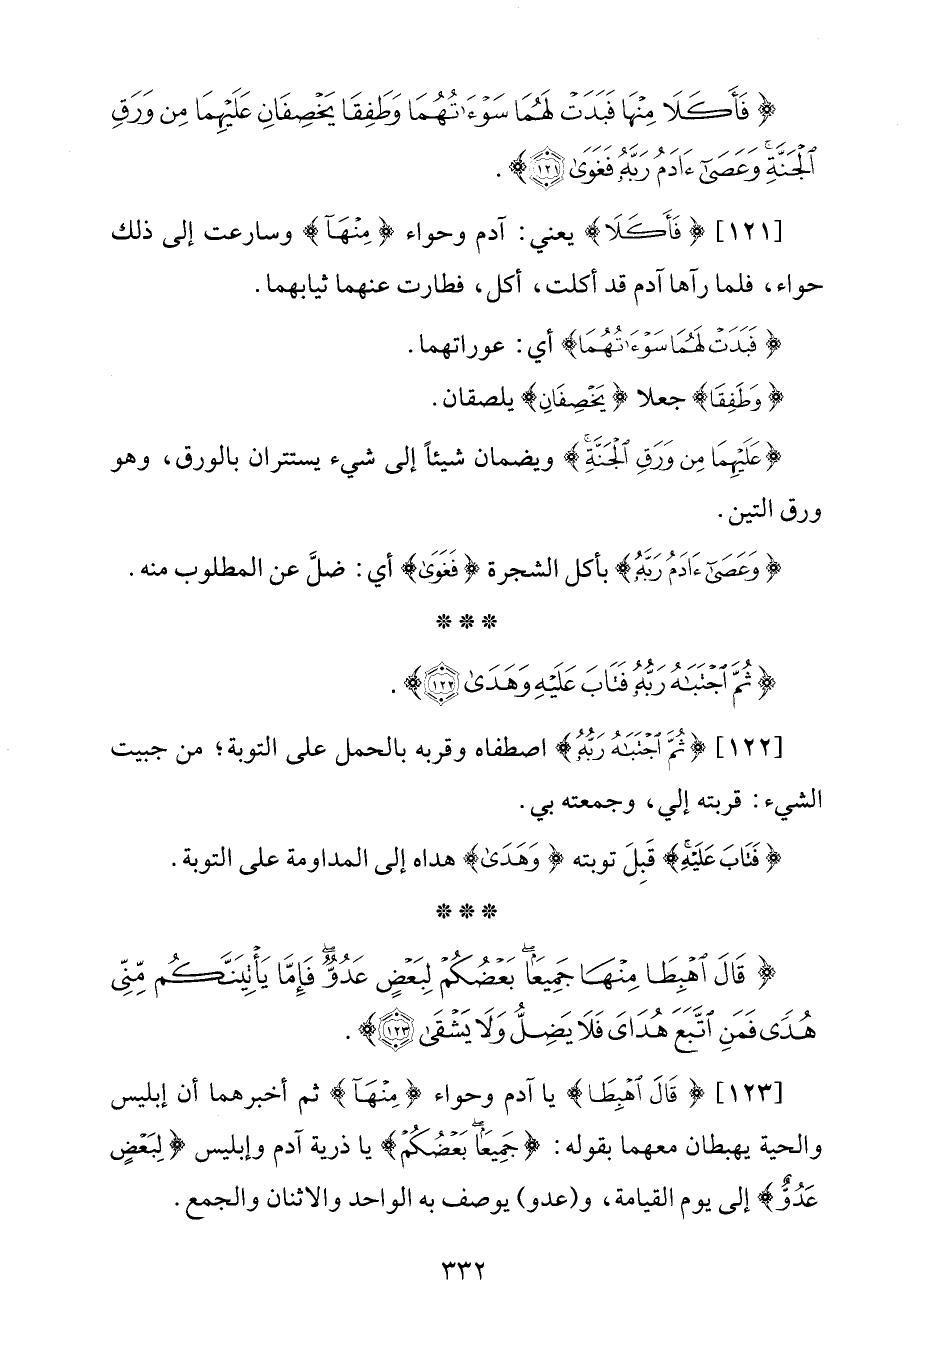 ﴿ فَأَكَلَا مِنْهَا فَبَدَتْ لَهُمَا سَوْءَٰتُهُمَا وَطَفِقَا يَخْصِفَانِ عَلَيْهِمَا مِن وَرَقِ
ٱلْجَنَّةِ ۚ وَعَصَىٰٓ ءَادَمُ رَبَّهُۥ فَغَوَىٰ ١٢١ ﴾ .
[١٢١] ﴿ فَأَكَلَا ﴾ يعني: آدم وحواء ﴿ مِنْهَا ﴾ وسارعت إلى ذلك
حواء، فلما رآها آدم قد أكلت، أكل، فطارت عنهما ثيابهما.
﴿ فَبَدَتْ لَهُمَا سَوْءَٰتُهُمَا ﴾ أي: عوراتهما.
﴿ وَطَفِقَا ﴾ جعلا ﴿ يَخْصِفَانِ ﴾ يلصقان.
﴿ عَلَيْهِمَا مِن وَرَقِ ٱلْجَنَّةِ ۚ ﴾ ويضمان شيئاً إلى شيء يستتران بالورق، وهو
ورق التين.
﴿ وَعَصَىٰٓ ءَادَمُ رَبَّهُۥ ﴾ بأكل الشجرة ﴿ فَغَوَىٰ ﴾ أي: ضلَّ عن المطلوب منه.
* * *
﴿ ثُمَّ ٱجْتَبَٰهُ رَبُّهُۥ فَتَابَ عَلَيْهِ وَهَدَىٰ ١٢٢ ﴾ .
[١٢٢] ﴿ ثُمَّ ٱجْتَبَٰهُ رَبُّهُۥ ﴾ اصطفاه وقربه بالحمل على التوبة؛ من جبيت
الشيء: قربته إلي، وجمعته بي.
﴿ فَتَابَ عَلَيْهِ ۚ ﴾ قَبِلَ توبته ﴿ وَهَدَىٰ ﴾ هداه إلى المداومة على التوبة.
* * *
﴿ قَالَ ٱهْبِطَا مِنْهَا جَمِيعًۢا ۖ بَعْضُكُمْ لِبَعْضٍ عَدُوٌّ ۖ فَإِمَّا يَأْتِيَنَّكُم مِّنِّى
هُدًى فَمَنِ ٱتَّبَعَ هُدَاىَ فَلَا يَضِلُّ وَلَا يَشْقَىٰ ١٢٣ ﴾ .
[١٢٣] ﴿ قَالَ ٱهْبِطَا ﴾ يا آدم وحواء ﴿ مِنْهَا ﴾ ثم أخبرهما أن إبليس
والحية يهبطان معهما بقوله: ﴿ جَمِيعًۢا ۖ بَعْضُكُمْ ﴾ يا ذرية آدم وإبليس ﴿ لِبَعْضٍ
عَدُوٌّ ﴾ إلى يوم القيامة، و(عدو) يوصف به الواحد والاثنان والجمع.
٣٣٢